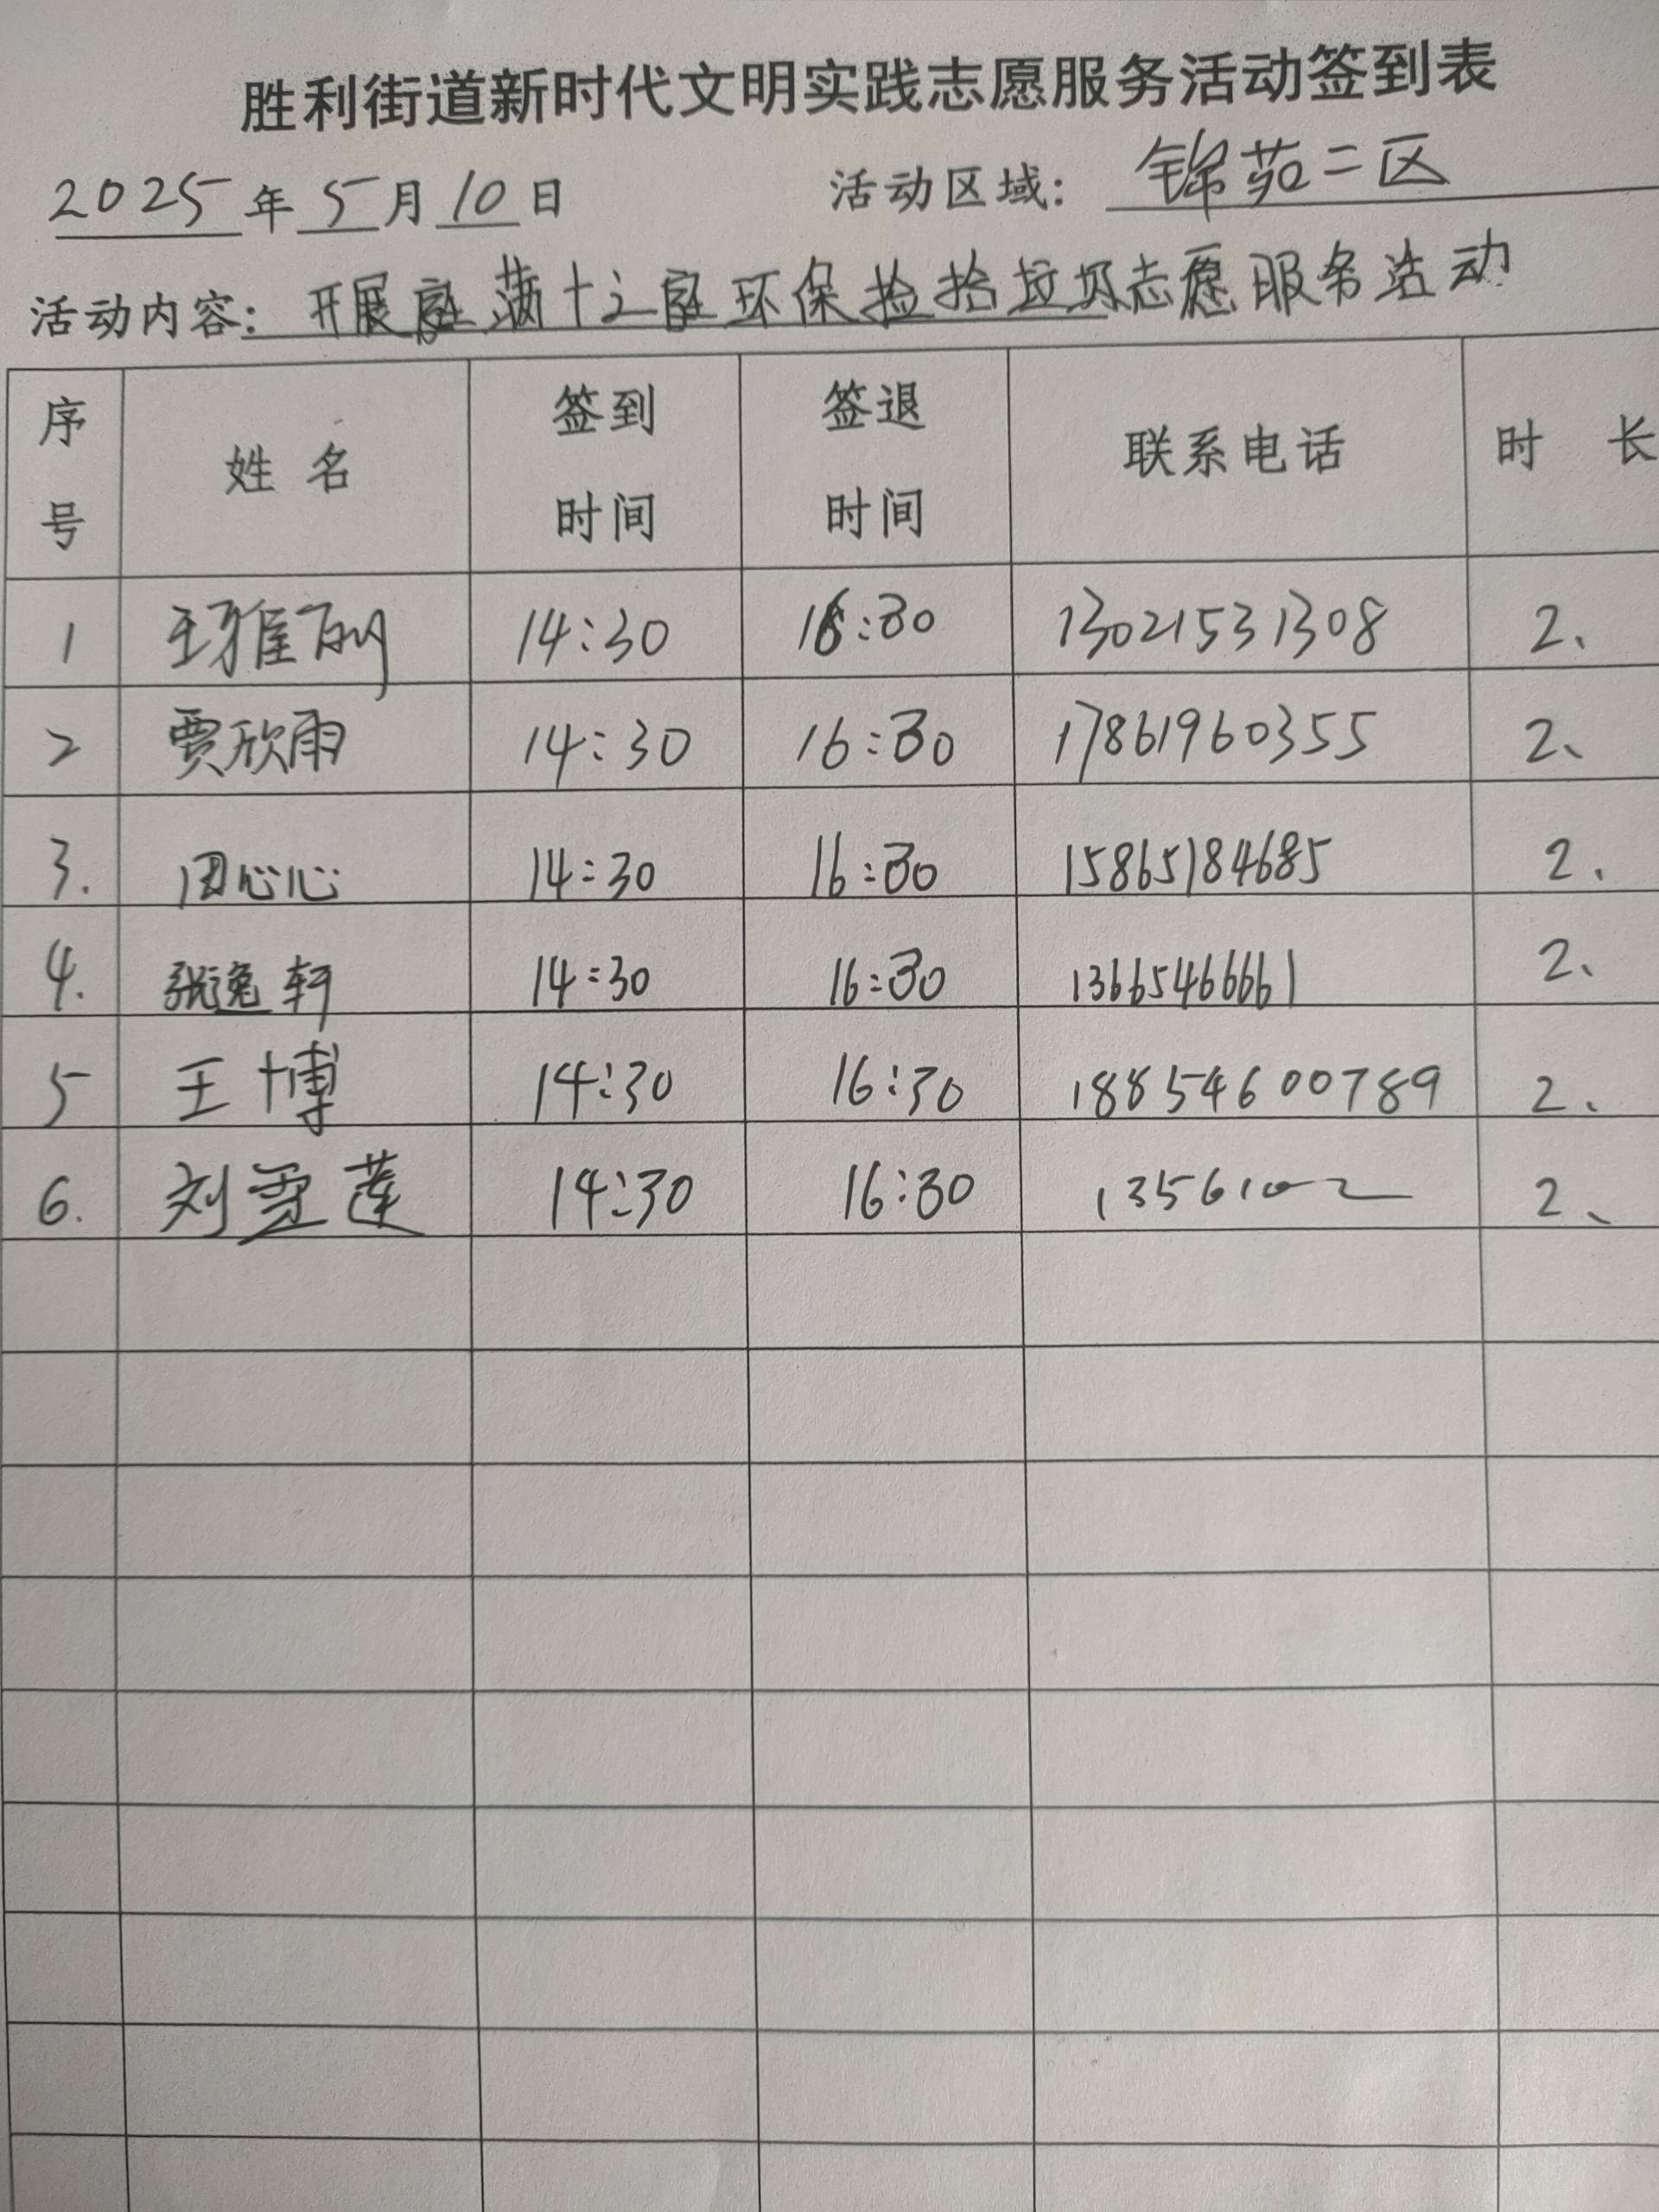 胜利街道新时代文明实践志愿服务活动签到表
2025年5月10日 活动区域：锦苑二区
活动内容：开展 满十 环保捡拾垃圾志愿服务活动
序号 姓名 签到时间 签退时间 联系电话 时长
1 王雅丽 14:30 16:30 13021531308 2、
2 贾欣雨 14:30 16:30 17861960355 2、
3. 田心心 14:30 16:30 15865184685 2.
4. 张逸轩 14:30 16:30 13665466661 2、
5 王博 14:30 16:30 18854600789 2、
6. 刘雪莲 14:30 16:30 2、